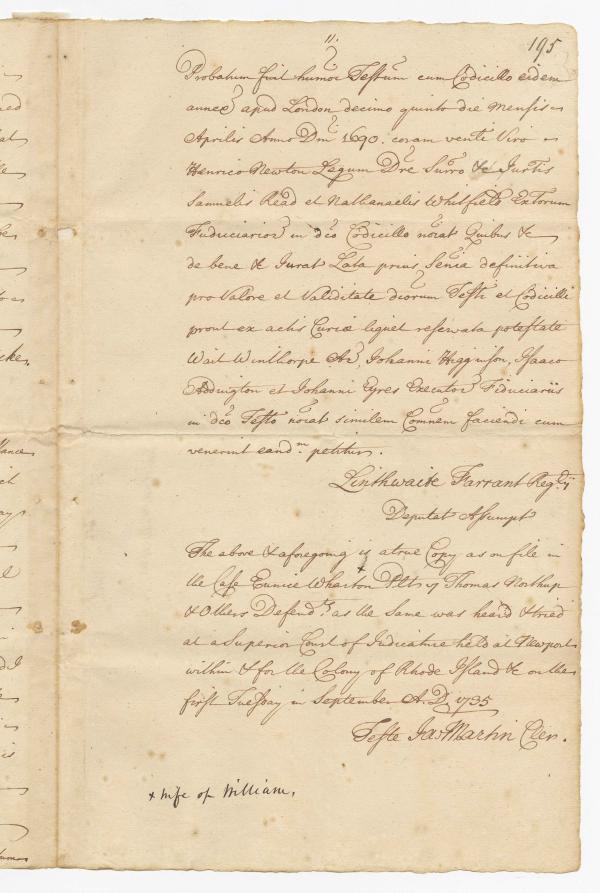 11.
195
Probatum fuit humoi Testum cum Codicillo eidem
annex apud London decimo quinto die Mensis
Aprilis Anno Dni 1690. coram venti Viro
Henrico Newton Legum Dre Surro &c Jurtis
Samuelis Read et Nathanaelis Whitfield Extorum
Fiduciarior in dco Codicillo noiat Quibus &c
de bene &c Jurat Lata prius Senia definitiva
pro Valore et Validitate dicorum Testi et Codicilli
prout ex actis Curiæ liquet reservata potestate
Wait Winthorpe Ar, Johanni Higginson, Isaaco
Addington et Johanni Eyres Executor Fiduciariis
in dco Testo noiat similem Comnem faciendi cum
venerint eandm petitur.
Linthwaite Farrant Regrij
Deputat Assumpt
The above & aforegoing is a true Copy as on file in
the Case Eunice Wharton + Plt vs Thomas Northup
& Others Defendts as the Same was heard & tried
at a Superior Court of Judicature held at Newport
within & for the Colony of Rhode Island &c on the
first Tuesday in September A.D. 1735
Teste Jas Martin Cler.
+ wife of William.